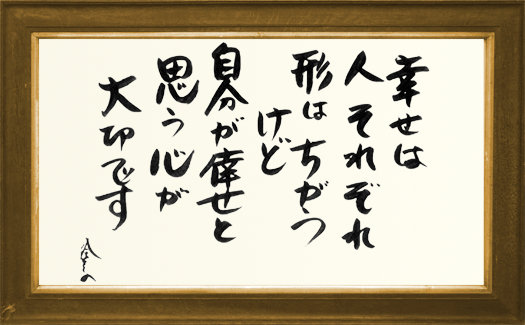 幸せは
人それぞれ
形はちがう
けど
自分が倖せと
思う心が
大切です